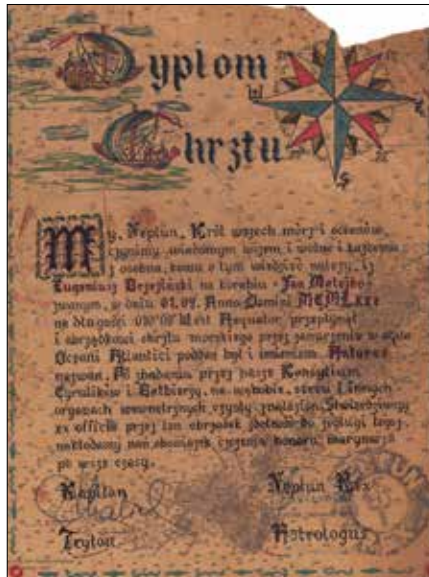 Dyplom
Chrztu
W
S
My, Neptun, Król wszech mórz i oceanów,
czynimy wiadomym wszem i wobec i każdemu
z osobna, komu o tym wiedzieć należy, iż
Eugeniusz Brzeziński na korabiu "Jan Matejko"
zwanym, w dniu 01.09. Anno Domini
na długości W ent Aequator przepłynął
i obrządkowi chrztu morskiego przez zanurzenie w
Oceani Atlantici poddan był i imieniem Antares
nazwan. Po zbadaniu przez nasze Konsylium
Cyrulików i Balbierzy, na wątrobie, sercu i innych
organach wewnętrznych czysty znaleziony. Stwierdzamy
ex officio przez ten obrządek zdolność do żeglugi
nakładamy nań obowiązek czczenia honoru marynarza
po wsze czasy.
Kapitan Neptun Rex
Tryton Astrologus